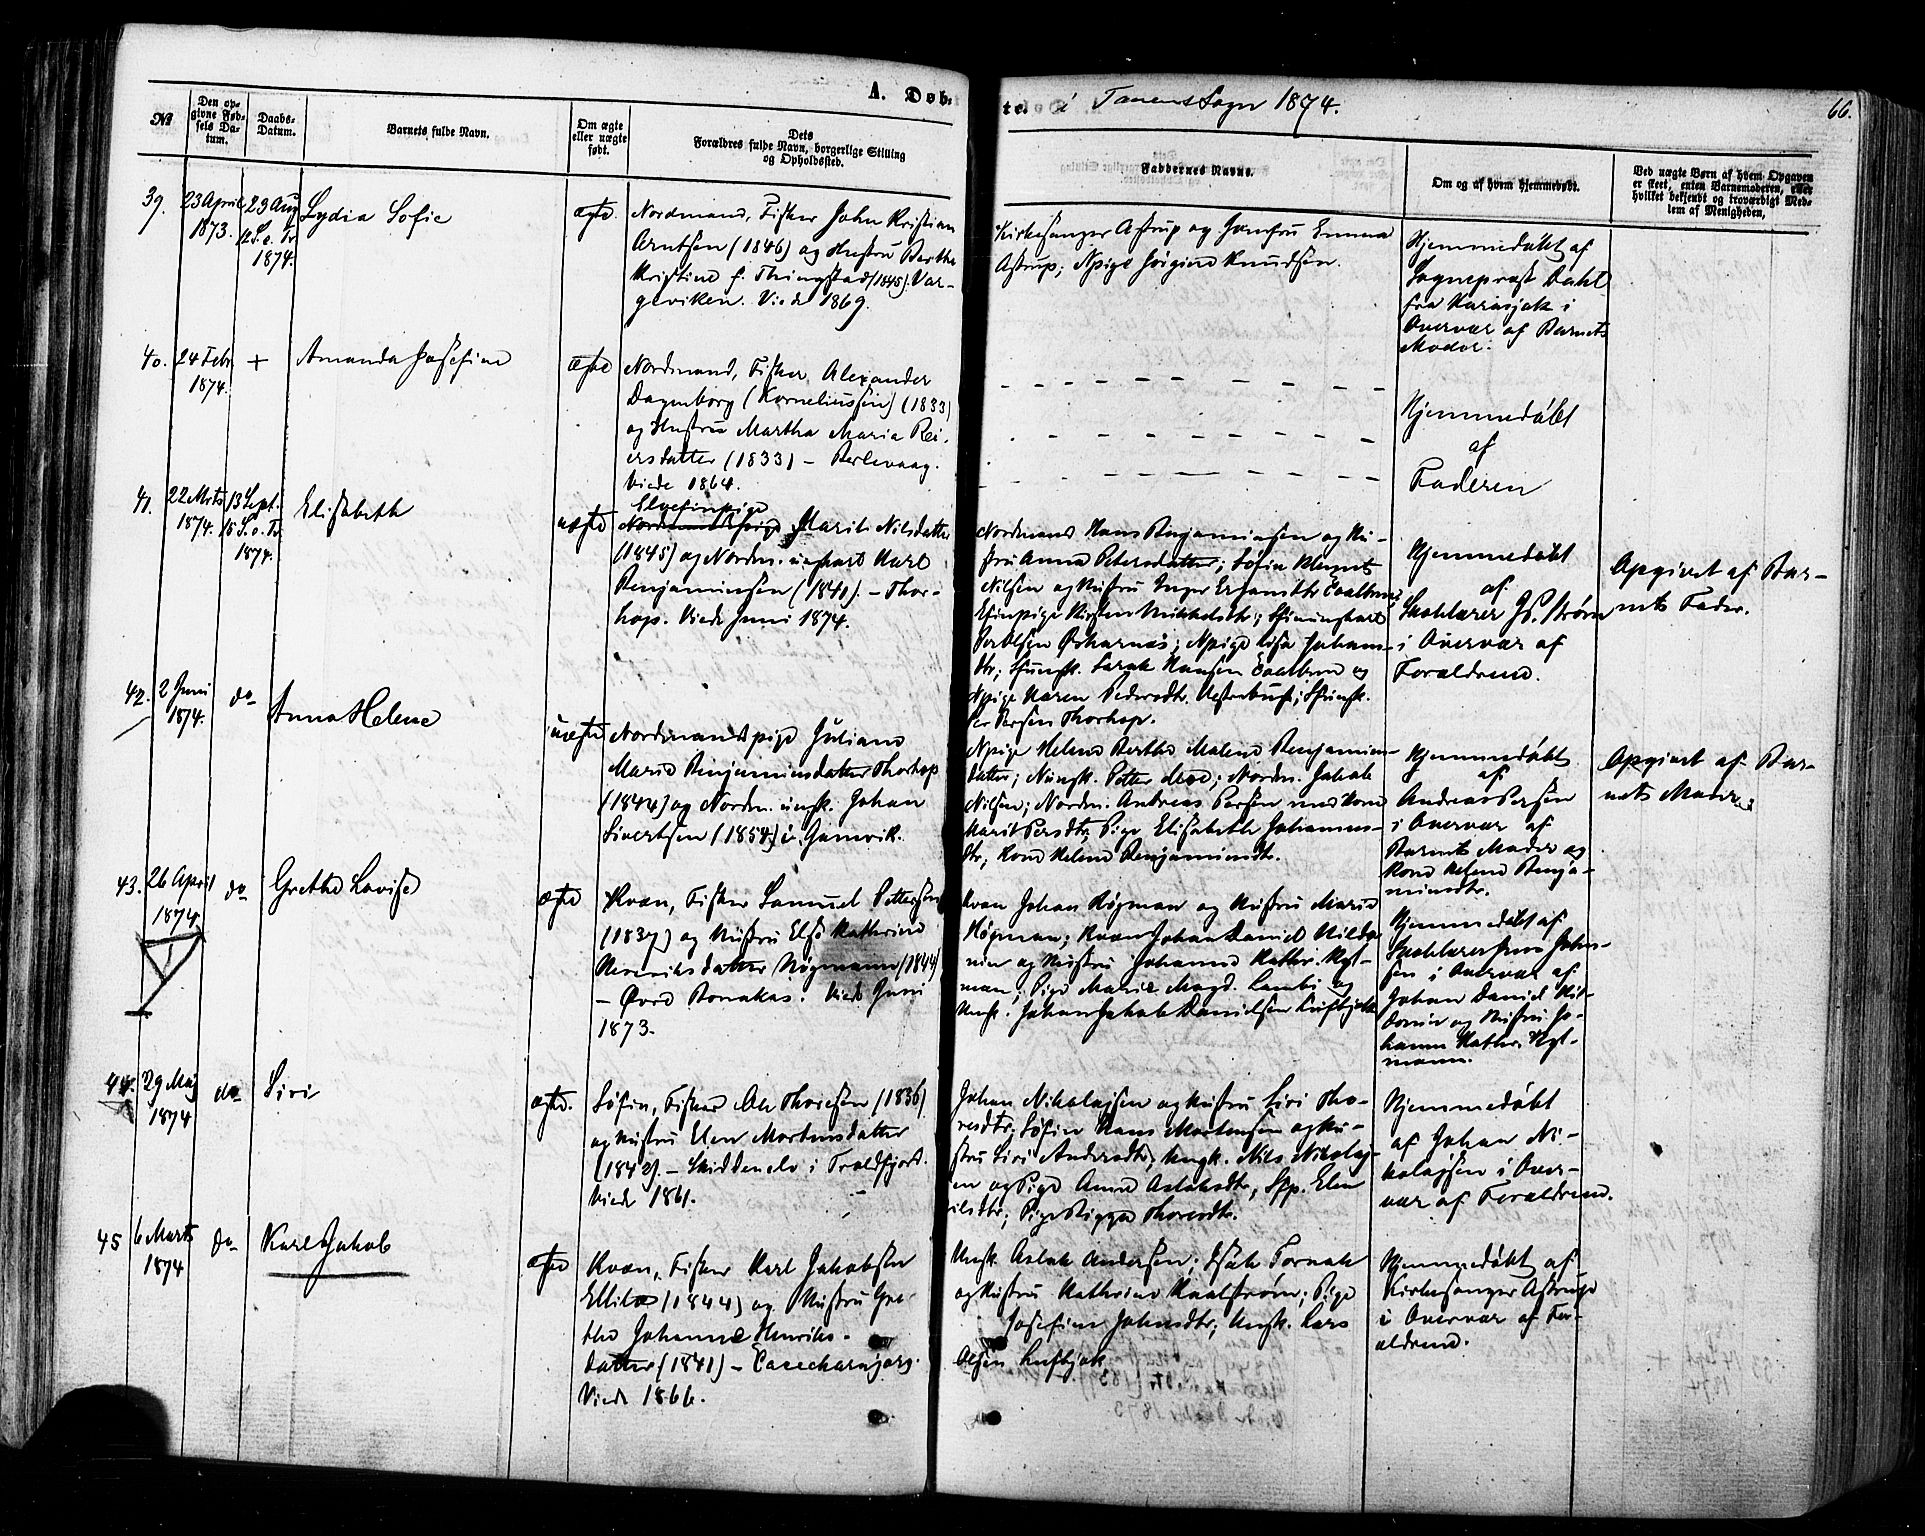 A. Døb-
te. i Tanens Sogn 1874.
66.
No
Den op-
givne Fød-
sels Da-
tum.
Daabs-
Datum.
Barnets fulde Navn.
Om ægte
eller uægte
født.
Dets
Forældres fulde Navn, borgerlige Stilling
og Opholdssted.
Faddernes Navne.
Om og af hvem hjemmedøbt.
Ved uægte Børn af hvem Opgaven
er skeet, enten Barnemoderen, eller
hvilket bekjendt og troværdigt Med-
lem af Menigheden.
39.
23 April
1873.
23 Aug
12 S. e. Tr.
1874.
Lydia Sofie
ægte.
Nordmand, Fisker John Kristian
Arntsen (1846) og Hustru Bertha
Kristine f. Thingstad (1845). Var-
geviken. Viede 1869.
Kirkesanger Astrup og Jomfru Emma
Astrup; Npige Jørgine Knudsen.
Hjemmedøbt af
Sogneprest Dahl
fra Karasjok i
Overvær af Barnets
Moder.
40.
24 Febr
1874.
+
Amanda Josefine
ægte
Nordmand, Fisker Alexander
Dagenborg (Korneliussen) (1833)
og Hustru Martha Maria Rei-
ersdatter (1833) - Berlevaag.
Viede 1864.
Hjemmedøbt
af
Faderen
41.
22 Mrts
1874.
13 Sept.
15 S. e. Tr.
1874.
Elisabeth
uægte
Marit Nilsdatter
(1845) og Nordm. ungkarl Karl
Benjaminsen (1840). - Thor-
hop. Viede Juni 1874.
Nordmand Hans Benjaminsen og Hu-
stru Anna Petersdatter; Søfin
Nilsen og Hustru Inger
Sfinpige Kirsten Mikkelsdtr; Sfinungkarl
Per Olsen; Npige Lisa Johans-
dtr; Sfungk. Sarak Hansen og
Npige Karen Pedersdtr.; Sfinsk.
Per Persen Thorhop.
Hjemmedøbt
af
Skolelærer Js. Strøm
i Overvær af
Forældrene.
Opgivet af Bar-
nets Fader.
42.
2 Juni
1874.
do
Anna Helene
uægte
Nordmandspige Juliane
Marie Benjaminsdatter Thorhop
(1844) og Nordm. ungk. Johan
Sivertsen (1854) i Gamvik.
Npige Helene Bertha Malene Benjamins-
datter; Nungk. Petter; Nordm. Jakob
Nilsen; Nordm. Andreas Persen med Kone
Marit Persdtr; Pige Elisabeth Johannes-
dtr; Kone Helene Benjaminsdtr.
Hjemmedøbt
af
Andreas Persen
i Overvær af
Barnets Moder og
Kone Helene Benja-
minsdtr.
Opgivet af Bar-
nets Moder
43.
26 April
1874.
do
Grethe Lovise
ægte
Kvæn, Fisker Samuel Pettersen
(1837) og Hustru Else Kathrine
Henriksdatter Högmann (1844)
- Øvre Bonakas. Viede Juni
1873.
Kvæn Johan Högman og Hustru Maria
Högman; Kvæn Johan Daniel
og Hustru Johanna Kathr.
man; Pige Marie Magd. Lambi og
Ungk. Johan Jakob Danielsen Luftjok
Hjemmedøbt af
Skolelærer Jens John-
sen i Overvær af
Johan Daniel
og Hustru Jo-
hanna Kathr.
mann.
44.
29 Maj
1874
do
Siri
ægte.
Søfin, Fisker Ole Thoresen (1836)
og Hustru Elen Mortensdatter
(1842). - Skiddenelv i Troldfjord.
Viede 1861.
Johan Nikolajsen og Hustru Siri Tho-
resdtr; Søfin Hans Mortensen og Hu-
stru Siri Andersdtr; Ungk. Nils Nikolaj-
sen og Pige Anna Aslaksdtr, Sfp. Elen
Nilsdtr; Pige Bigga Thoresdtr.
Hjemmedøbt
af Johan Ni-
kolajsen i Over-
vær af Forældrene.
45
6 Marts
1874
do
Karl Jakob
ægte
Kvæn, Fisker Karl Jakobsen
Ellila (1844) og Hustru Gre-
the Johanne Henriks-
datter (1841) -
Viede 1866.
Ungk. Aslak Andersen; Isak Fornæs
og Hustru Kathrine Kaalstrøm; Pige
Josefine Johnsdtr; Ungk. Lars
Olsen Luftjok
Hjemmedøbt af
Kirkesanger Astrup
i Overvær af For-
ældrene.